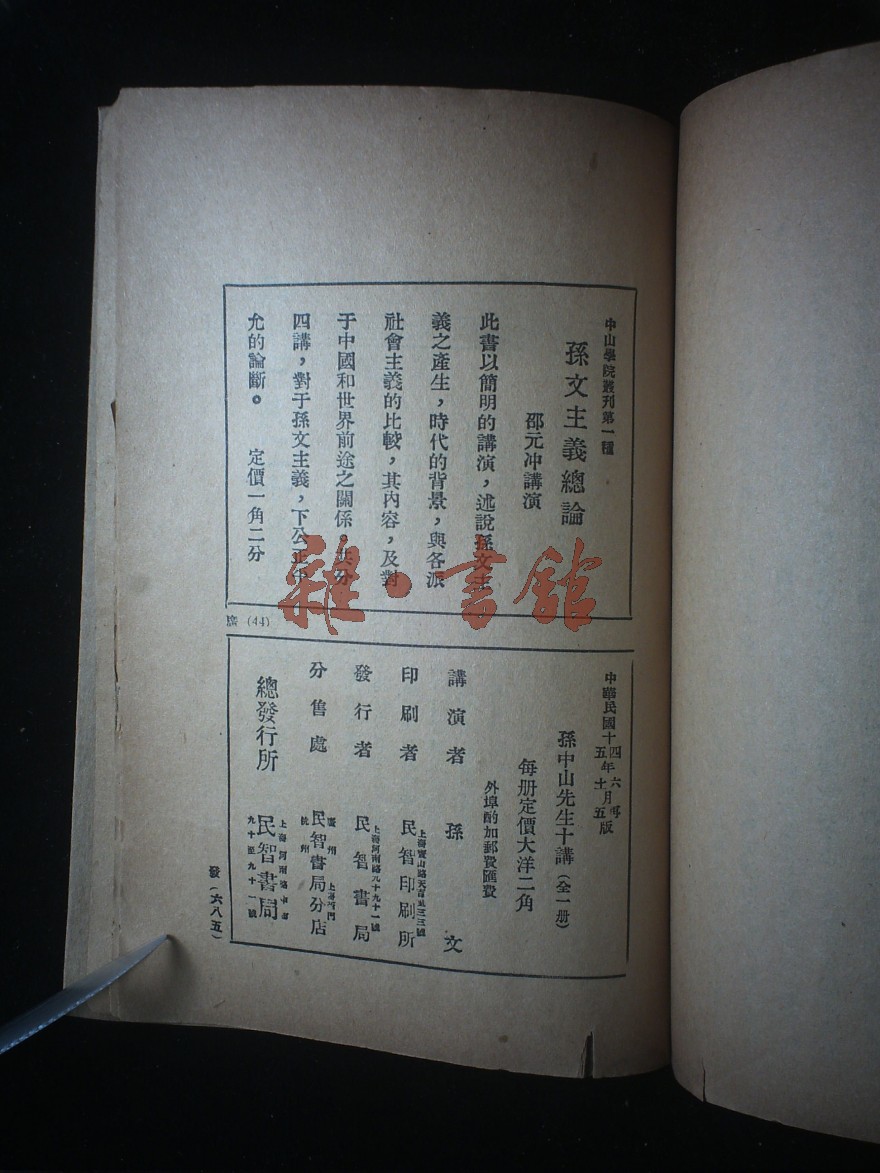 中山學院叢刊第一種
孫文主義總論
邵元冲講演
此書以簡明的講演，述說孫文主
義之產生，時代的背景，與各派
社會主義的比較，其內容，及對
于中國和世界前途之關係。共分
四講，對于孫文主義，下公正中
允的論斷。 定價一角二分
(44)
中華民國十四年六月再版
五十五五
孫中山先生十講（全一册）
每册定價大洋二角
外埠酌加郵費匯費
講演者 孫文
印刷者 民智印刷所
發行者 上海河南路九十九十一號 民智書局
分售處 民智書局分店
總發行所 民智書局 九十至九十一號
發（六八五）
雜·書館